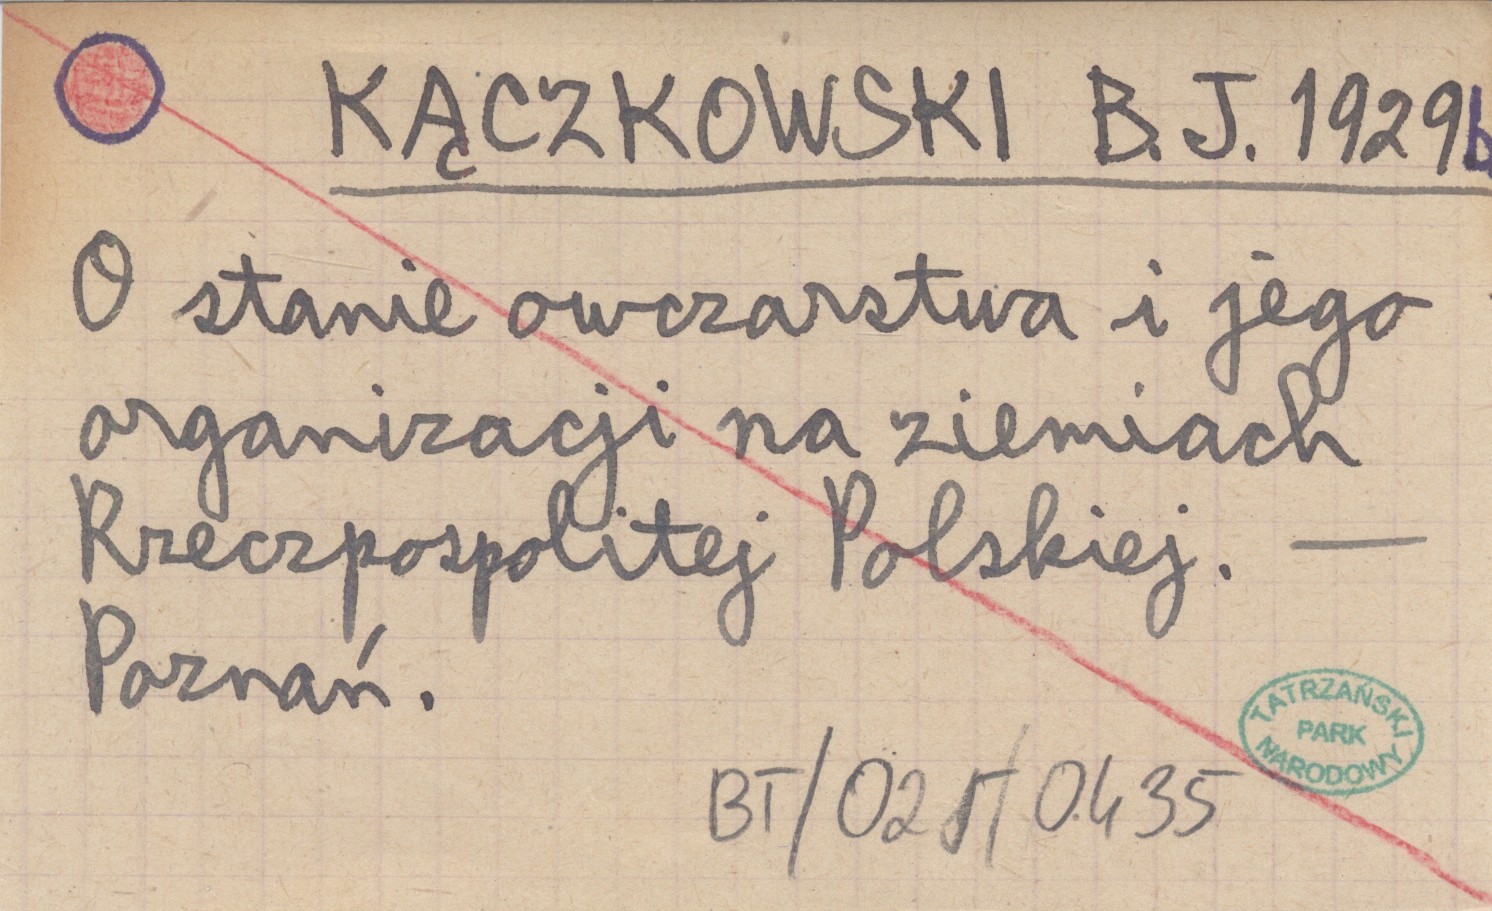 KĄCZKOWSKI B.J. 1929b
O stanie owczarstwa i jego
organizacji na ziemiach
Rzeczpospolitej Polskiej. —
Poznań.
TATRZAŃSKI
PARK
NARODOWY
BT/02 /0435